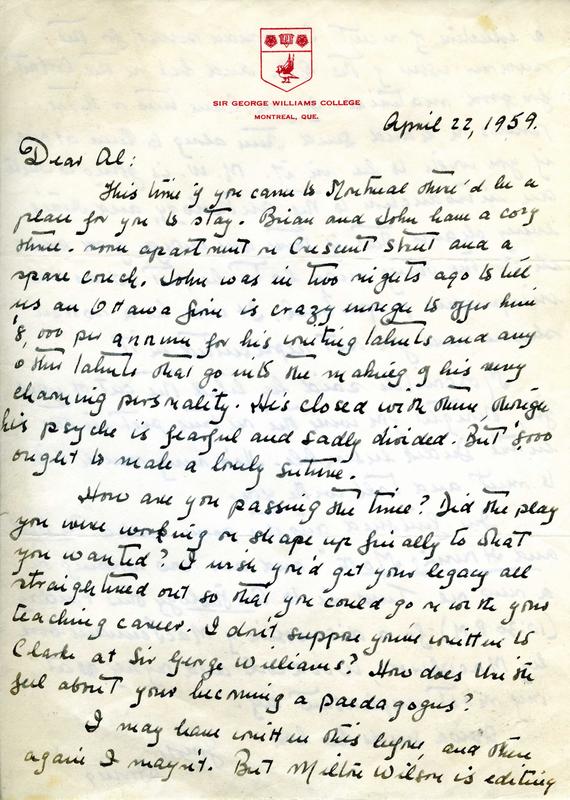 SIR GEORGE WILLIAMS COLLEGE
MONTREAL, QUE.
April 22, 1959.
Dear Al:
This time if you came to Montreal there'd be a
place for you to stay. Brian and John have a cozy
three-room apartment on Crescent Street and a
spare couch. John was in two nights ago to tell
us an Ottawa firm is crazy enough to offer him
$8,000 per annum for his writing talents and any
other talents that go into the making of his very
charming personality. He's closed with them, though
his psyche is fearful and sadly divided. But $8000
ought to make a lovely suture.
How are you passing the time? Did the play
you were working on shape up finally to what
you wanted? I wish you'd get your legacy all
straightened out so that you could go on with your
teaching career. I don't suppose you've written to
Clarke at Sir George Williams? How does
feel about your becoming a paedagogus?
I may have written this before, and then
again I mayn't. But Milton Wilson is editing